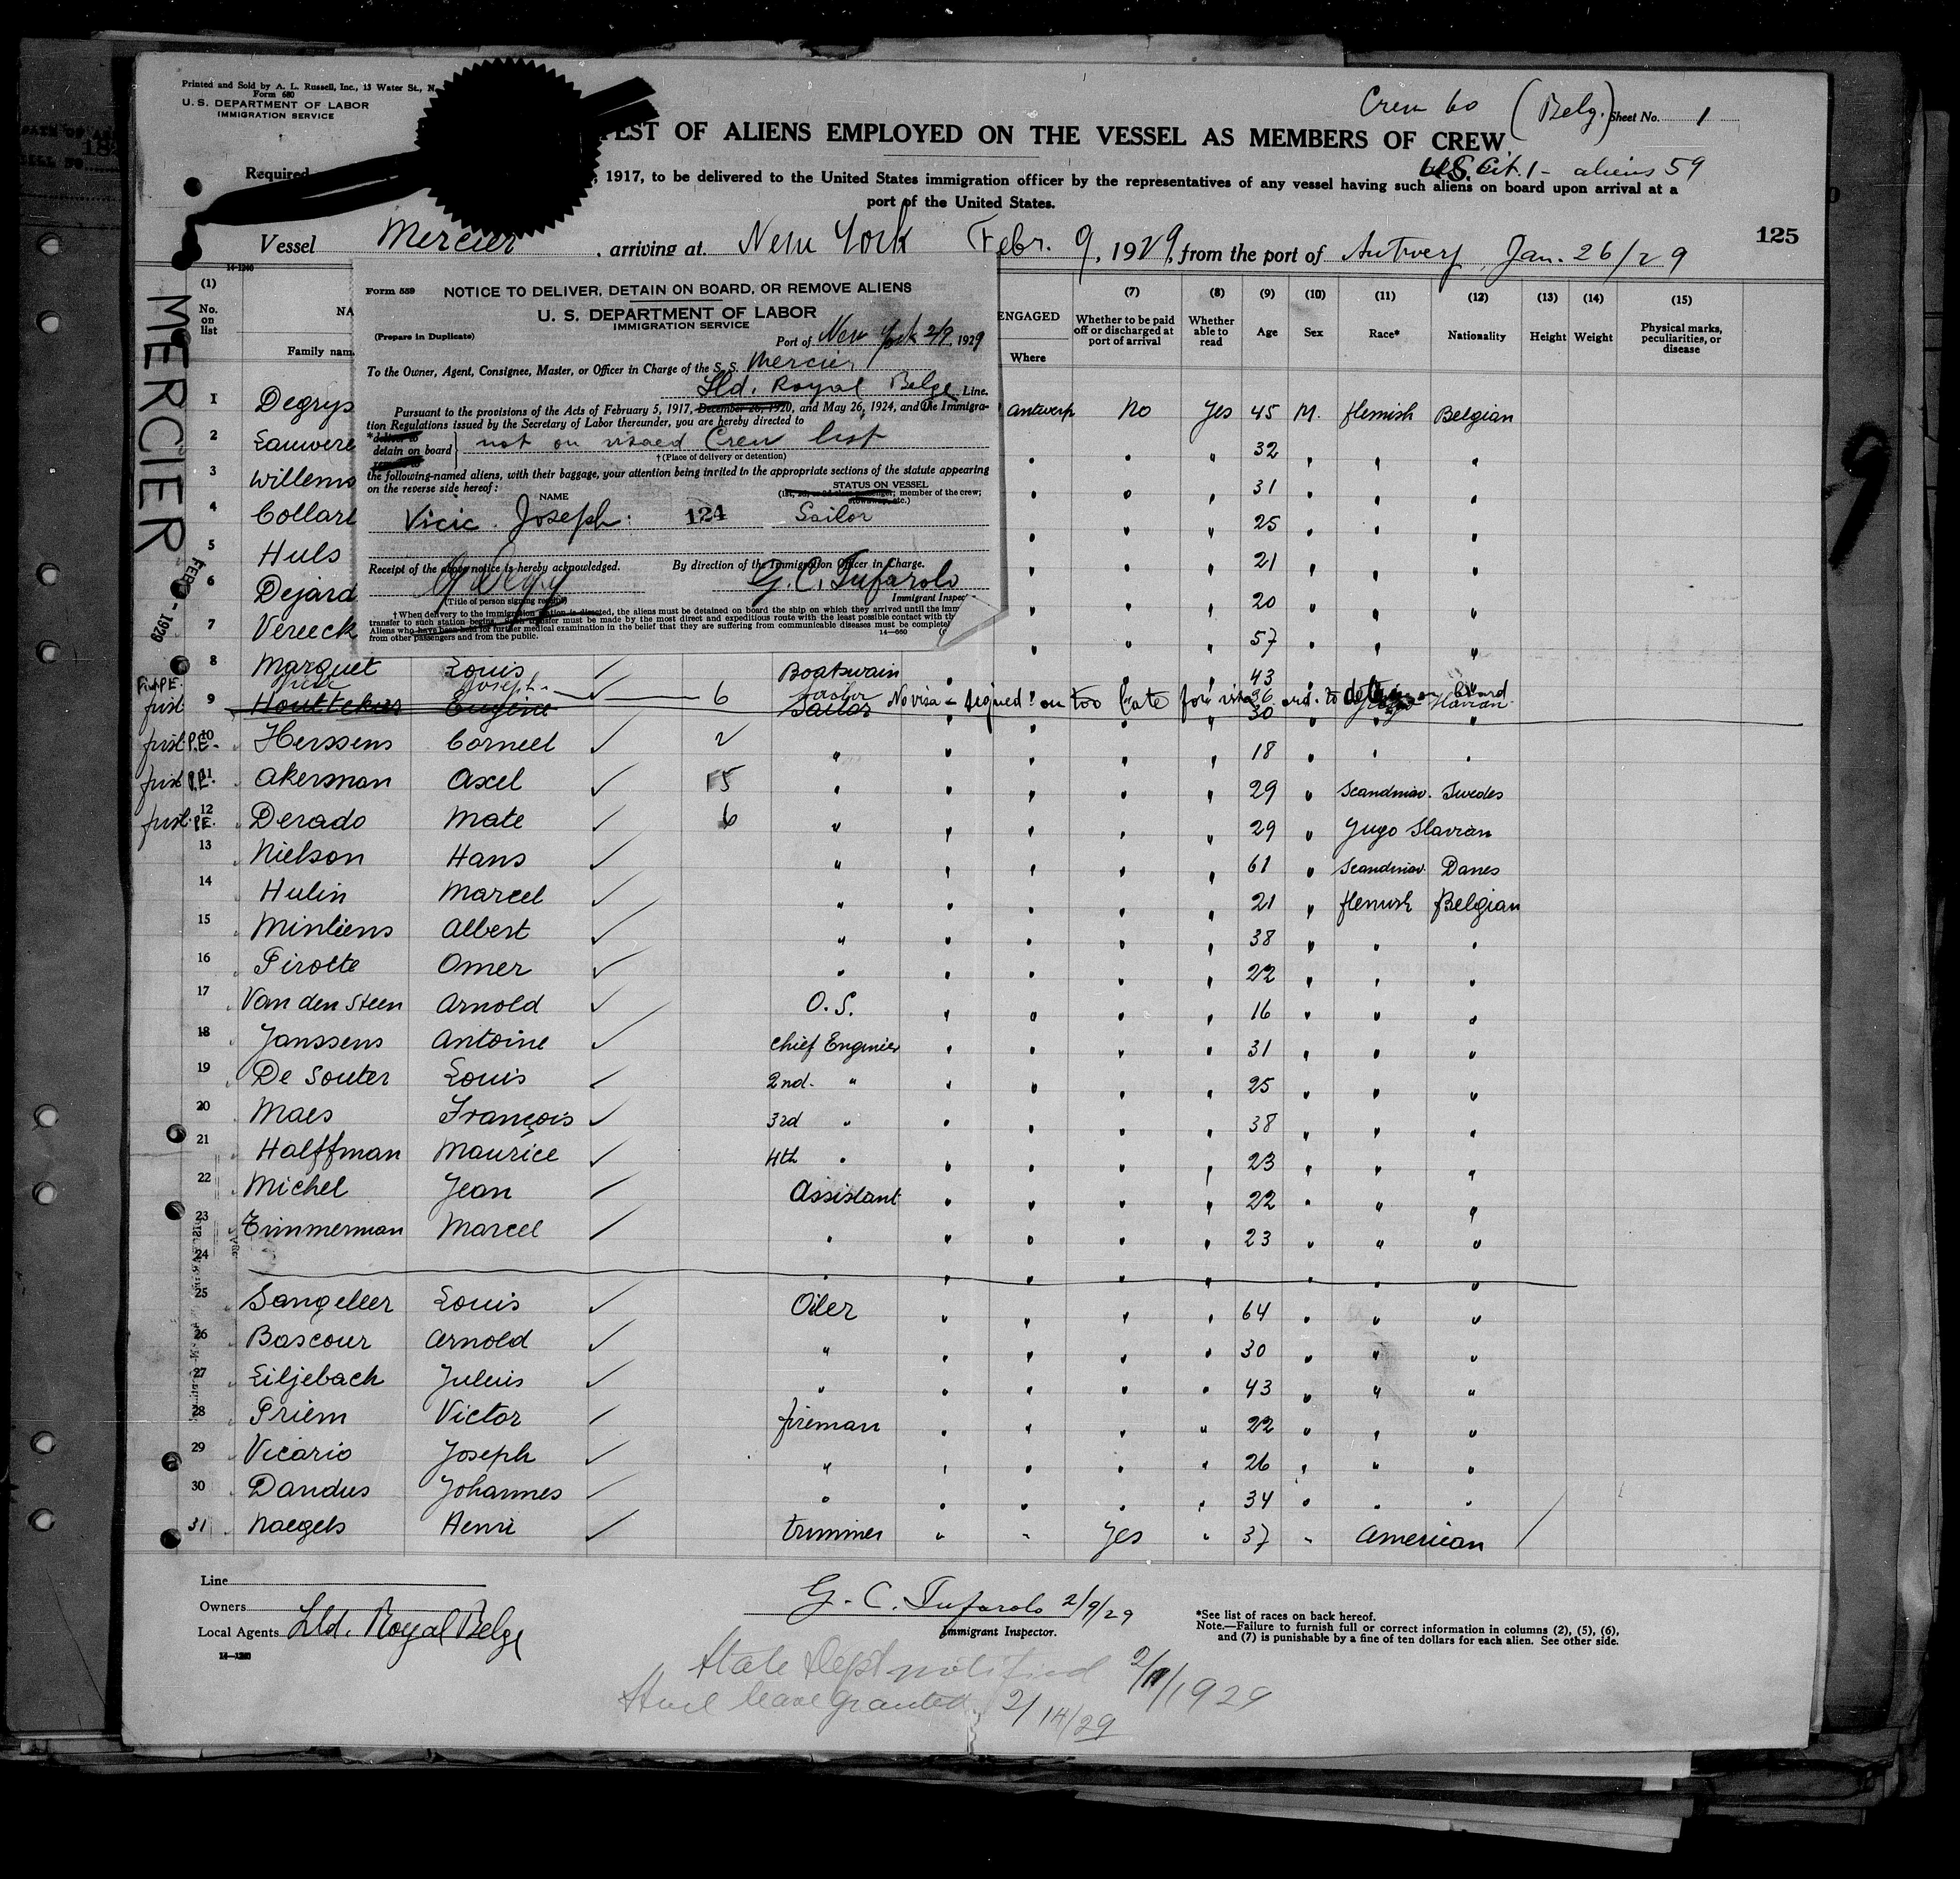 Printed and Sold by A. L. Russell, Inc., 13 Water St., N.
Form 680
U. S. DEPARTMENT OF LABOR
IMMIGRATION SERVICE
Crew 60 (Belg.) Sheet No. 1
FEST OF ALIENS EMPLOYED ON THE VESSEL AS MEMBERS OF CREW
U.S. Cit. 1 - aliens 59
Required , 1917, to be delivered to the United States immigration officer by the representatives of any vessel having such aliens on board upon arrival at a
port of the United States.
Vessel Mercier , arriving at New York Febr. 9, 1929, from the port of Antwerp, Jan. 26/29
125
14-1240
MERCIER
FEB - 1929
9
Form 559 NOTICE TO DELIVER, DETAIN ON BOARD, OR REMOVE ALIENS
U. S. DEPARTMENT OF LABOR
IMMIGRATION SERVICE
(Prepare in Duplicate)
Port of New York 2/9, 1929
To the Owner, Agent, Consignee, Master, or Officer in Charge of the S. S. Mercier
Lld. Royal Belge Line.
Pursuant to the provisions of the Acts of February 5, 1917, December 26, 1920, and May 26, 1924, and the Immigra-
tion Regulations issued by the Secretary of Labor thereunder, you are hereby directed to
*deliver to
detain on board not on visaed Crew list
†(Place of delivery or detention)
the following-named aliens, with their baggage, your attention being invited in the appropriate sections of the statute appearing
on the reverse side hereof:
NAME STATUS ON VESSEL
(1st, 2d, or 3d class passenger; member of the crew;
stowaway, etc.)
Vicic Joseph: 124 Sailor
Receipt of the above notice is hereby acknowledged. By direction of the Immigration Officer in Charge.
G. C. Tufarolo
(Title of person signing receipt) Immigrant Inspec
†When delivery to the immigration station is directed, the aliens must be detained on board the ship on which they arrived until the imm
transfer to such station begins. Such transfer must be made by the most direct and expeditious route with the least possible contact with th
Aliens who have been held for further medical examination in the belief that they are suffering from communicable diseases must be complete
from other passengers and from the public. 14—660
(1) ENGAGED (7) (8) (9) (10) (11) (12) (13) (14) (15)
No. on list NA Family nam Where Whether to be paid off or discharged at port of arrival Whether able to read Age Sex Race* Nationality Height Weight Physical marks, peculiarities, or disease
1 Degrys Antwerp No Yes 45 M. flemish Belgian
2 Lauwere " " " 32 " " "
3 Willems " " " 31 " " "
4 Collart " " " 25 " " "
5 Huls " " " 21 " " "
6 Dejard " " " 20 " " "
7 Vereeck " " " 57 " " "
8 Marquet Louis ✓ Boatswain " " " 43 " " "
Vicic Joseph ✓ 6 Sailor No visa - signed on too late for visa 26 ord. to detain on board Yugo Slavian
first P.E. 9 Houttekies Eugene Sailor 30
first P.E. 10 Herssens Corneel ✓ 2 " " " " " 18 " " "
first P.E. 11 Akerman Axel ✓ 15 " " " " " 29 " Scandinav. Swedes
first P.E. 12 Derado Mate ✓ 6 " " " " " 29 " Yugo Slavian
13 Nielson Hans ✓ " " " " " 61 " Scandinav. Danes
14 Hulin Marcel ✓ " " " " " 21 " flemish Belgian
15 Mintiens Albert ✓ " " " " " 38 " " "
16 Pirotte Omer ✓ " " " " " 22 " " "
17 Van den Steen Arnold ✓ O. S. " " " " 16 " " "
18 Janssens Antoine ✓ Chief Engineer " " " " 31 " " "
19 De Souter Louis ✓ 2nd. " " " " " 25 " " "
20 Maes François ✓ 3rd " " " " " 38 " " "
21 Halffman Maurice ✓ 4th " " " " " 23 " " "
22 Michel Jean ✓ Assistant " " " " 22 " " "
23 Timmerman Marcel ✓ " " " " " 23 " " "
24 " " " " " " " "
25 Sangeleer Louis ✓ Oiler " " " " 64 " " "
26 Bascour Arnold ✓ " " " " " 30 " " "
27 Liljebach Juleius ✓ " " " " " 43 " " "
28 Priem Victor ✓ fireman " " " " 22 " " "
29 Vicario Joseph ✓ " " " " " 26 " " "
30 Dandus Johannes ✓ " " " " " 34 " " "
31 Naegels Henri ✓ trimmer " " Yes " 37 " American
Line
Owners
Local Agents Lld. Royal Belge
14—1240
G. C. Tufarolo 2/9/29
Immigrant Inspector.
*See list of races on back hereof.
Note.—Failure to furnish full or correct information in columns (2), (5), (6),
and (7) is punishable by a fine of ten dollars for each alien. See other side.
State Dept notified 2/11/1929
leave granted 2/14/29